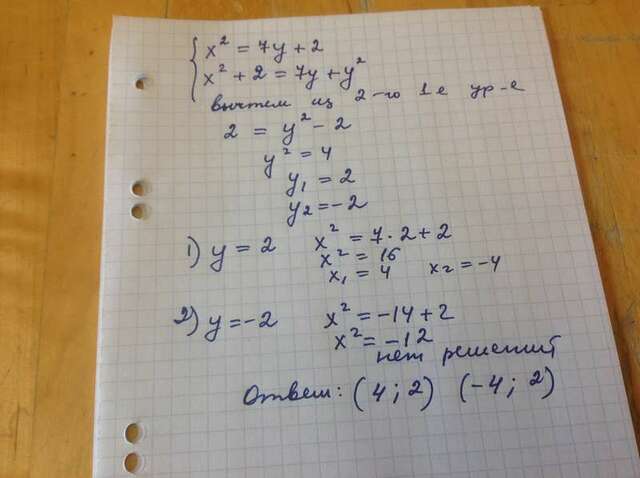 x² = 7y + 2
x² + 2 = 7y + y²
вычтем из 2-го 1е ур-е
2 = y² - 2
y² = 4
y₁ = 2
y₂ = -2
1) y = 2 x² = 7·2+2
x² = 16
x₁ = 4 x₂ = -4
2) y = -2 x² = -14+2
x² = -12
нет решений
Ответ: (4; 2) (-4; 2)